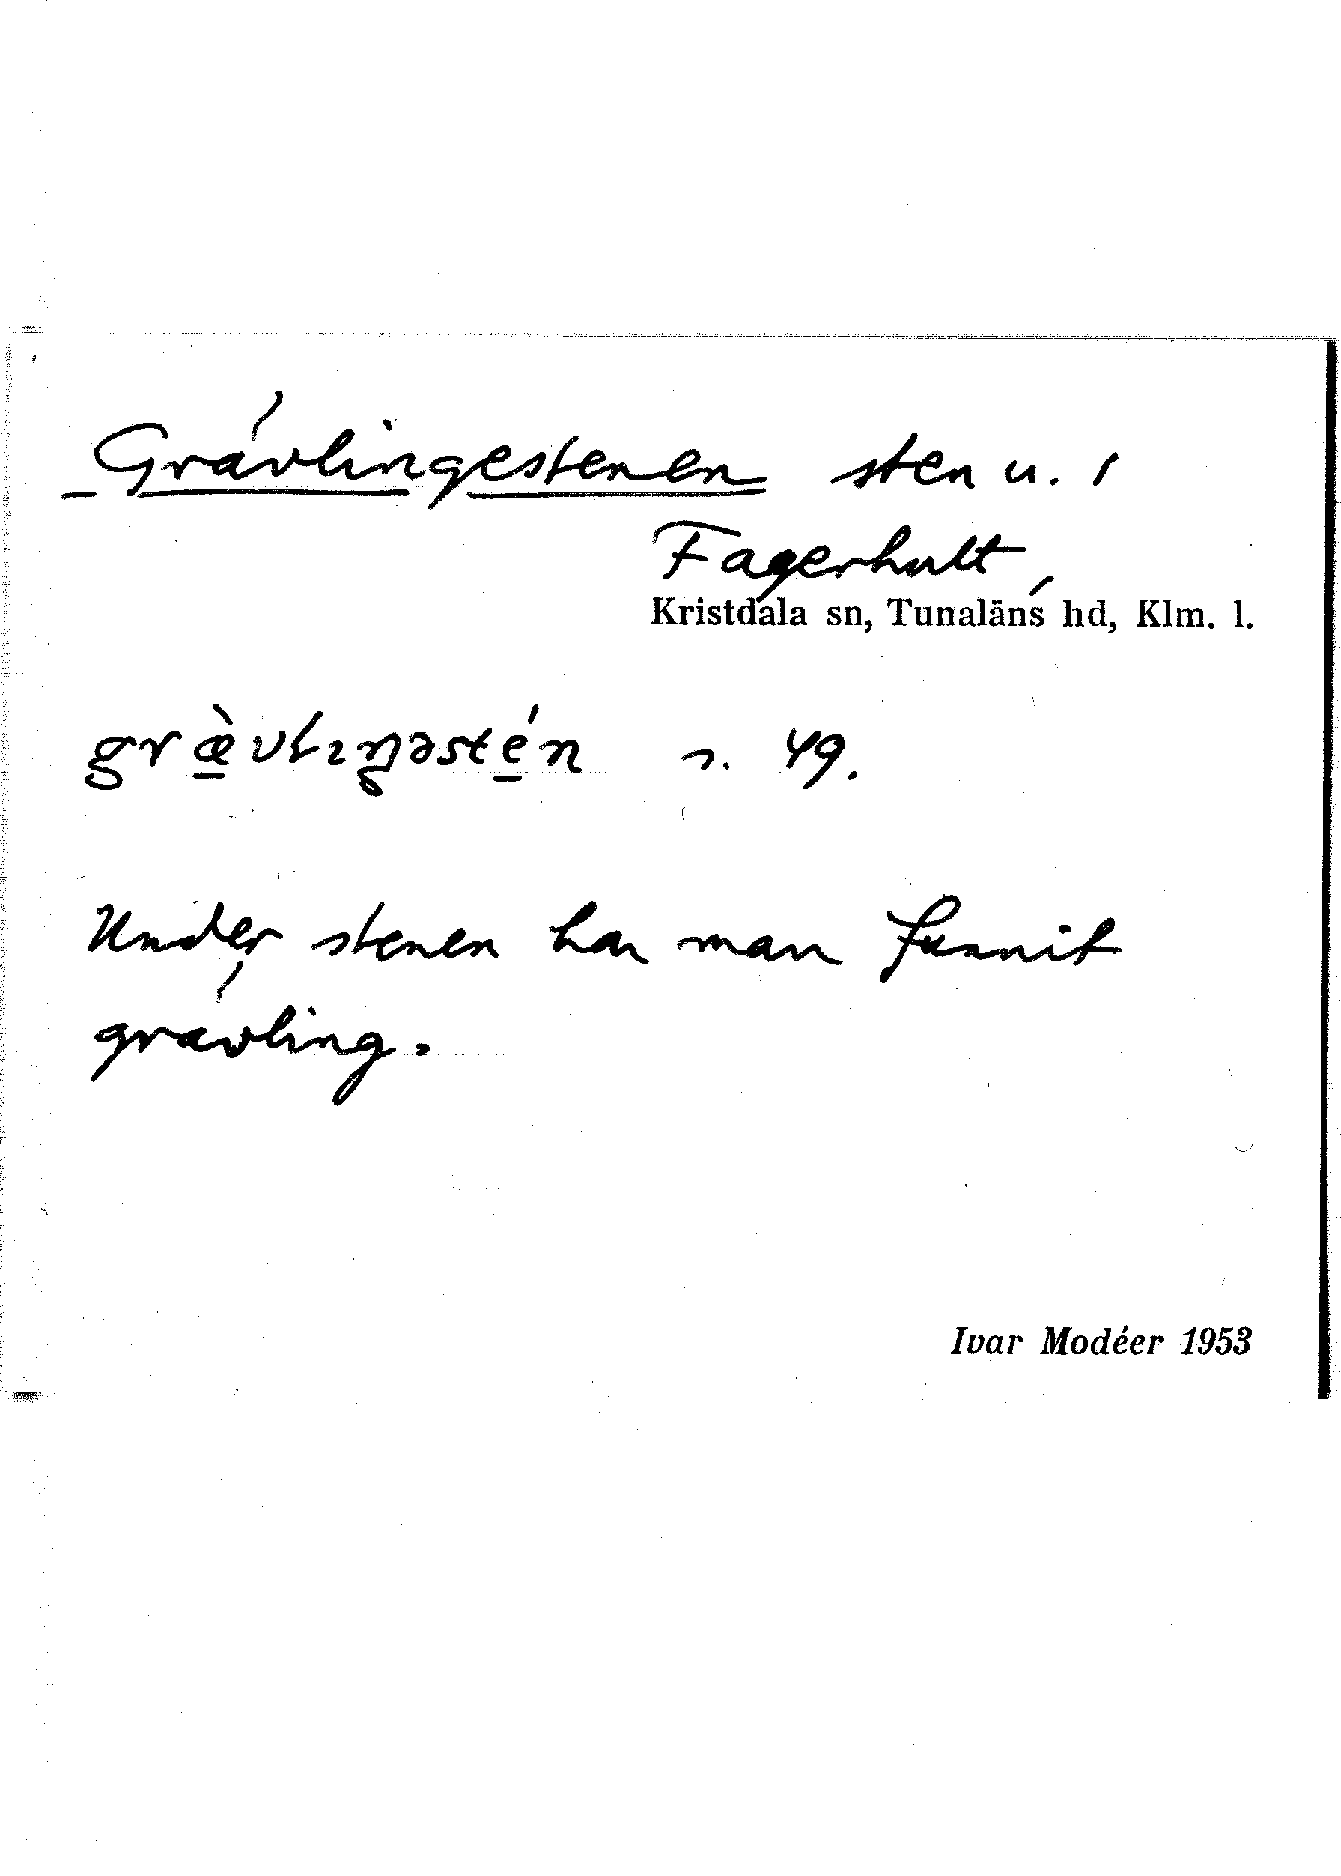 Grävlingestenen sten u. /
Fagerhult,
Kristdala sn, Tunaläns hd, Klm. l.
græ̀vlıŋəstén s. 49.
Under stenen har man funnit
grävling.
Ivar Modéer 1953